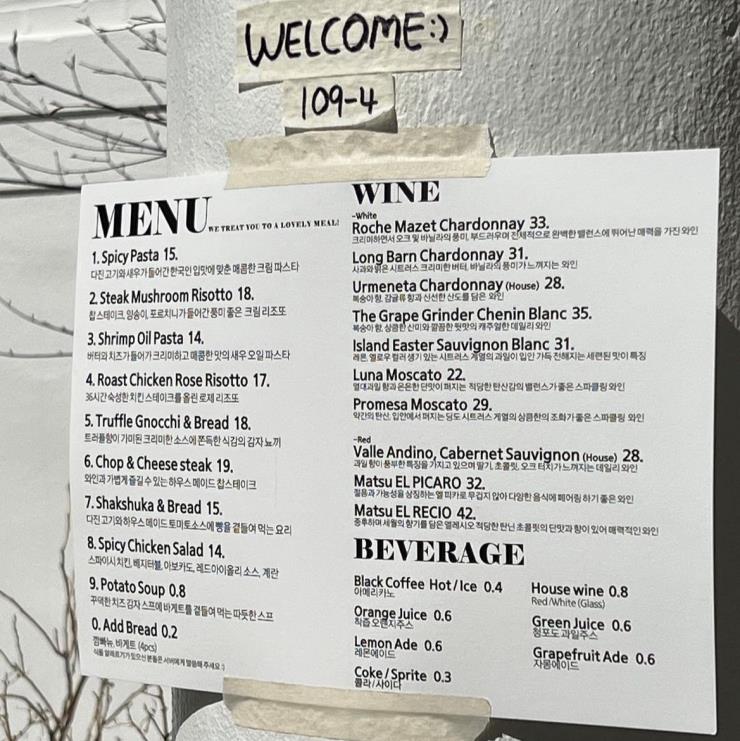 WELCOME:)
109-4
MENU WE TREAT YOU TO A LOVELY MEAL!
1. Spicy Pasta 15.
다진 고기와 새우가 들어간 한국인 입맛에 맞춘 매콤한 크림 파스타
2. Steak Mushroom Risotto 18.
찹 스테이크, 양송이, 포르치니가 들어간 풍미 좋은 크림 리조또
3. Shrimp Oil Pasta 14.
버터와 치즈가 들어가 크리미하고 매콤한 맛의 새우 오일 파스타
4. Roast Chicken Rose Risotto 17.
36시간 숙성한 치킨 스테이크를 올린 로제 리조또
5. Truffle Gnocchi & Bread 18.
트러플향이 가미된 크리미한 소스에 쫀득한 식감의 감자 뇨끼
6. Chop & Cheese steak 19.
와인과 가볍게 즐길 수 있는 하우스 메이드 찹스테이크
7. Shakshuka & Bread 15.
다진 고기와 하우스 메이드 토마토소스에 빵을 곁들여 먹는 요리
8. Spicy Chicken Salad 14.
스파이시 치킨, 베지터블, 아보카도, 레드아이올리 소스, 계란
9. Potato Soup 0.8
꾸덕한 치즈 감자 스프에 바게트를 곁들여 먹는 따듯한 스프
0. Add Bread 0.2
깜빠뉴, 바게트 (4pcs)
식품 알레르기가 있으신 분들은 서버에게 말씀해 주세요 :)
WINE
-White
Roche Mazet Chardonnay 33.
크리미하면서 오크 및 바닐라의 풍미, 부드러우며 전체적으로 완벽한 밸런스에 뛰어난 매력을 가진 와인
Long Barn Chardonnay 31.
사과와 맑은 시트러스 크리미한 버터, 바닐라의 풍미가 느껴지는 와인
Urmeneta Chardonnay (House) 28.
복숭아 향, 감귤류 향과 신선한 산도를 담은 와인
The Grape Grinder Chenin Blanc 35.
복숭아 향, 상큼한 산미와 깔끔한 뒷맛의 캐주얼한 데일리 와인
Island Easter Sauvignon Blanc 31.
레몬, 옐로우 컬러 생기 있는 시트러스 계열의 과일이 입안 가득 전해지는 세련된 맛이 특징
Luna Moscato 22.
열대과일 향과 은은한 단맛이 퍼지는 적당한 탄산감의 밸런스가 좋은 스파클링 와인
Promesa Moscato 29.
약간의 탄산, 입안에서 퍼지는 당도 시트러스 계열의 상큼한의 조화가 좋은 스파클링 와인
-Red
Valle Andino, Cabernet Sauvignon (House) 28.
과일 향이 풍부한 특징을 가지고 있으며 딸기, 초콜릿, 오크 터치가 느껴지는 데일리 와인
Matsu EL PICARO 32.
젊음과 가능성을 상징하는 엘 피카로 무겁지 않아 다양한 음식에 페어링 하기 좋은 와인
Matsu EL RECIO 42.
중후하며 세월의 향기를 담은 엘레시오 적당한 탄닌 초콜릿의 단맛과 향이 있어 매력적인 와인
BEVERAGE
Black Coffee Hot / Ice 0.4
아메리카노
Orange Juice 0.6
착즙 오렌지주스
Lemon Ade 0.6
레몬에이드
Coke / Sprite 0.3
콜라 / 사이다
House wine 0.8
Red/White (Glass)
Green Juice 0.6
청포도 과일주스
Grapefruit Ade 0.6
자몽에이드